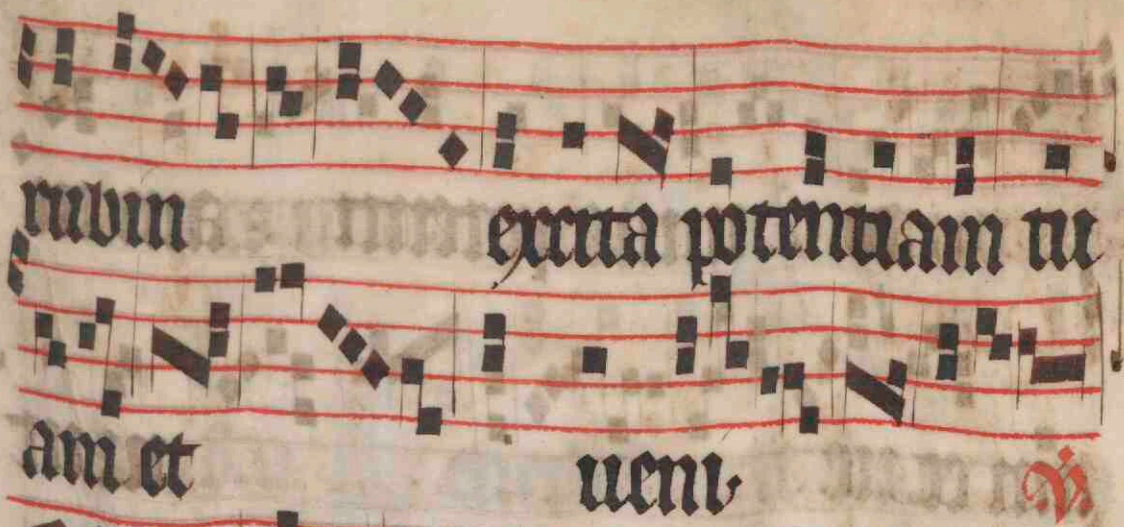 rubin excita potentiam tu
am et ueni. V